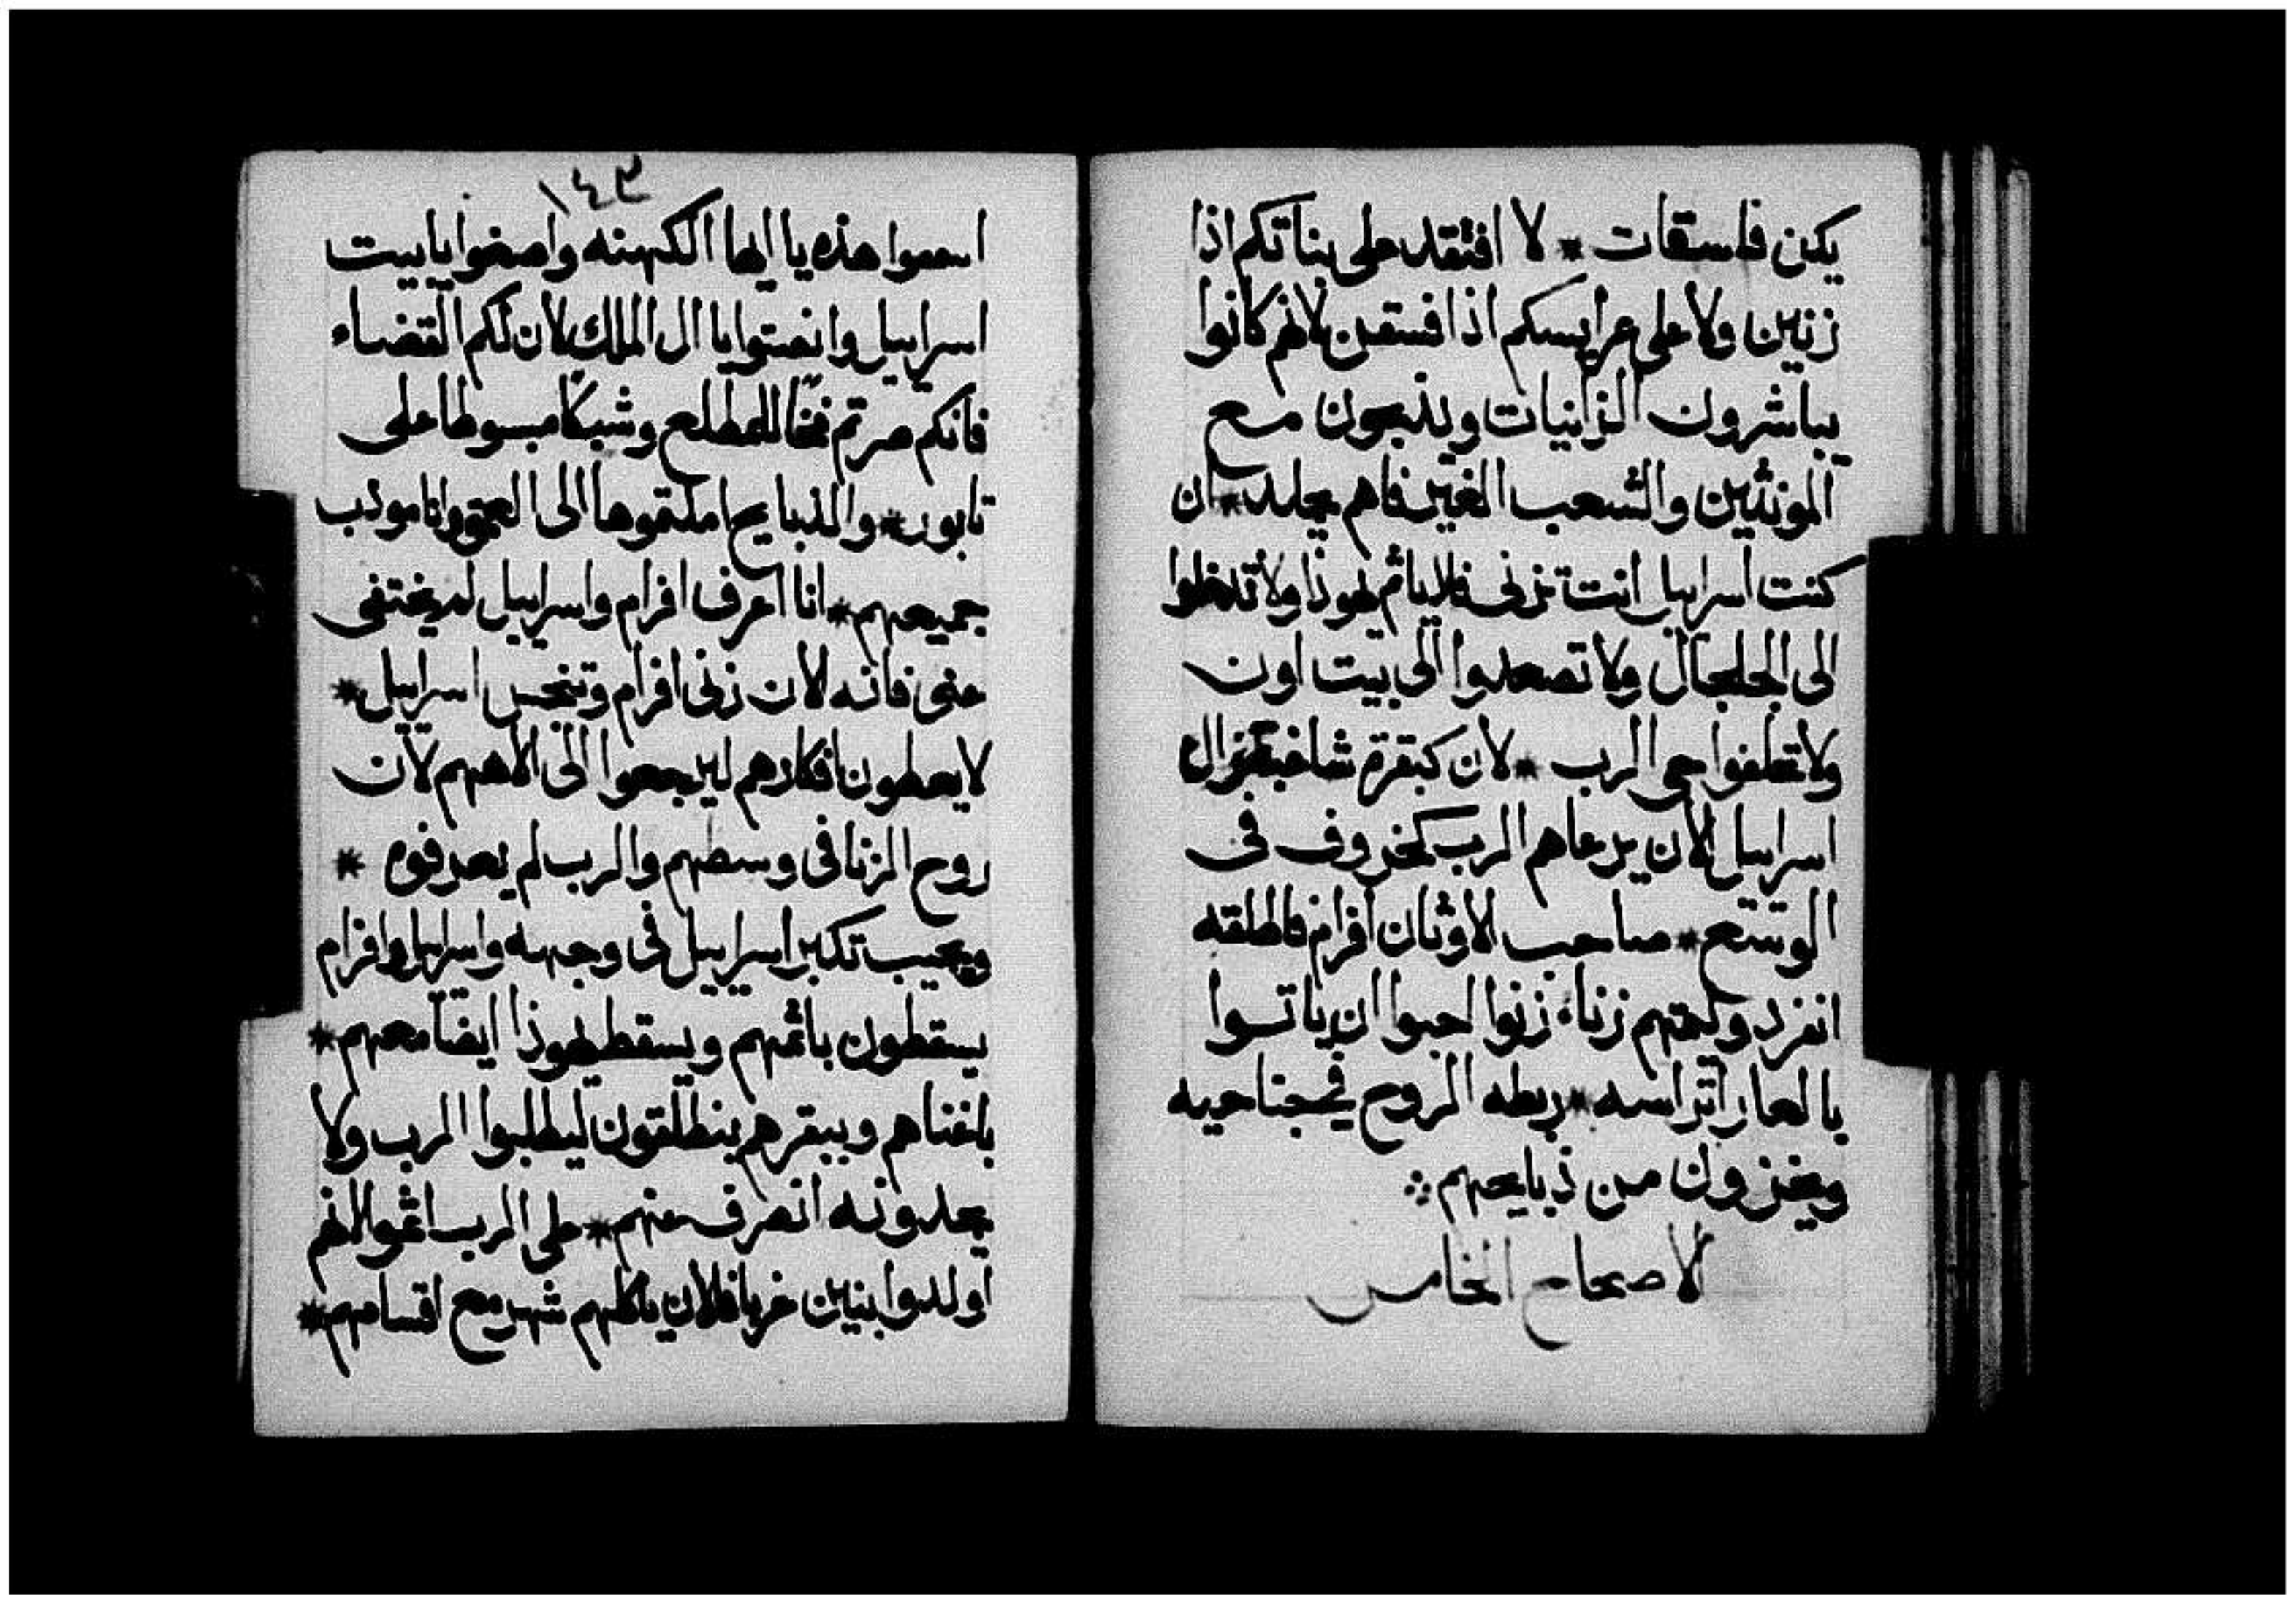 يكن فاسقات * لا افتقد على بناتكم اذا
زنين ولا على عرايسكم اذا فسقن لانهم كانوا
يباشرون الزانيات ويذبحون مع
المونثين والشعب الغير فاهم يجلد * ان
كنت اسراييل انت تزنى فلا ياثم يهوذا ولا تدخلوا
الى الجلجال ولا تصعدوا الى بيت اون
ولا تحلفوا حى الرب * لان كبقرة شاغبة زال
اسراييل الان يرعاهم الرب كخروف فى
الوسع * صاحب الاوثان افرام فاطلقه
انفرد وليمتهم زناء زنوا احبوا ان ياتوا
بالعار اتراسه * ربطه الروح فى جناحيه
ويخزون من ذبايحهم
الاصحاح الخامس
١٤٣
اسمعوا هذه يا ايها الكهنه واصغوا يا بيت
اسراييل وانصتوا يا ال الملك لان لكم القضاء
فانكم صرتم فخا للمطلع وشبكا مبسوطا على
تابور * والذبايح املتموها الى العمق وانا مودب
جميعهم * انا اعرف افرام واسراييل لم يختفى
عنى فانه الان زنى افرام وتنجس اسراييل *
لا يعطون افكارهم ليرجعوا الى الاههم لان
روح الزنا فى وسطهم والرب لم يعرفوه *
ويجيب تكبر اسراييل فى وجهه واسراييل وافرام
يسقطون باثمهم ويسقط يهوذا ايضا معهم *
باغناهم وببقرهم ينطلقون ليطلبوا الرب ولا
يجدونه انصرف عنهم * على الرب اثموا لانهم
اولدوا بنين غربا فالان ياكلهم شهر مع اقسامهم *